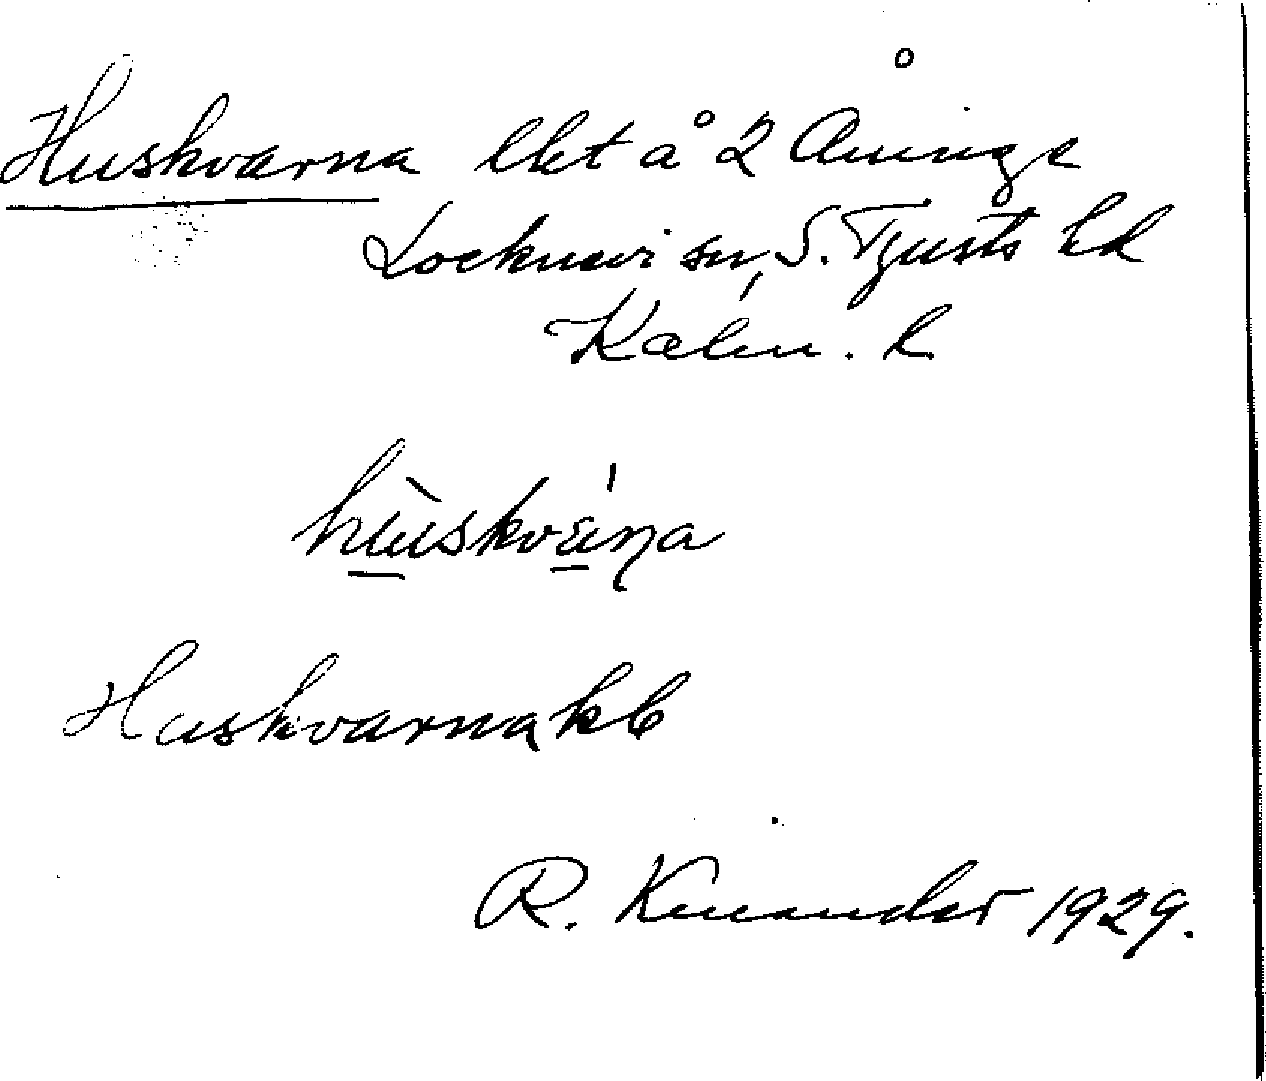 Huskvarna lht å 2 Åninge
Locknevi sn, S. Tjusts hd
Kalm. l
hùskvána
Huskvarna kb
R. Kinander 1929.